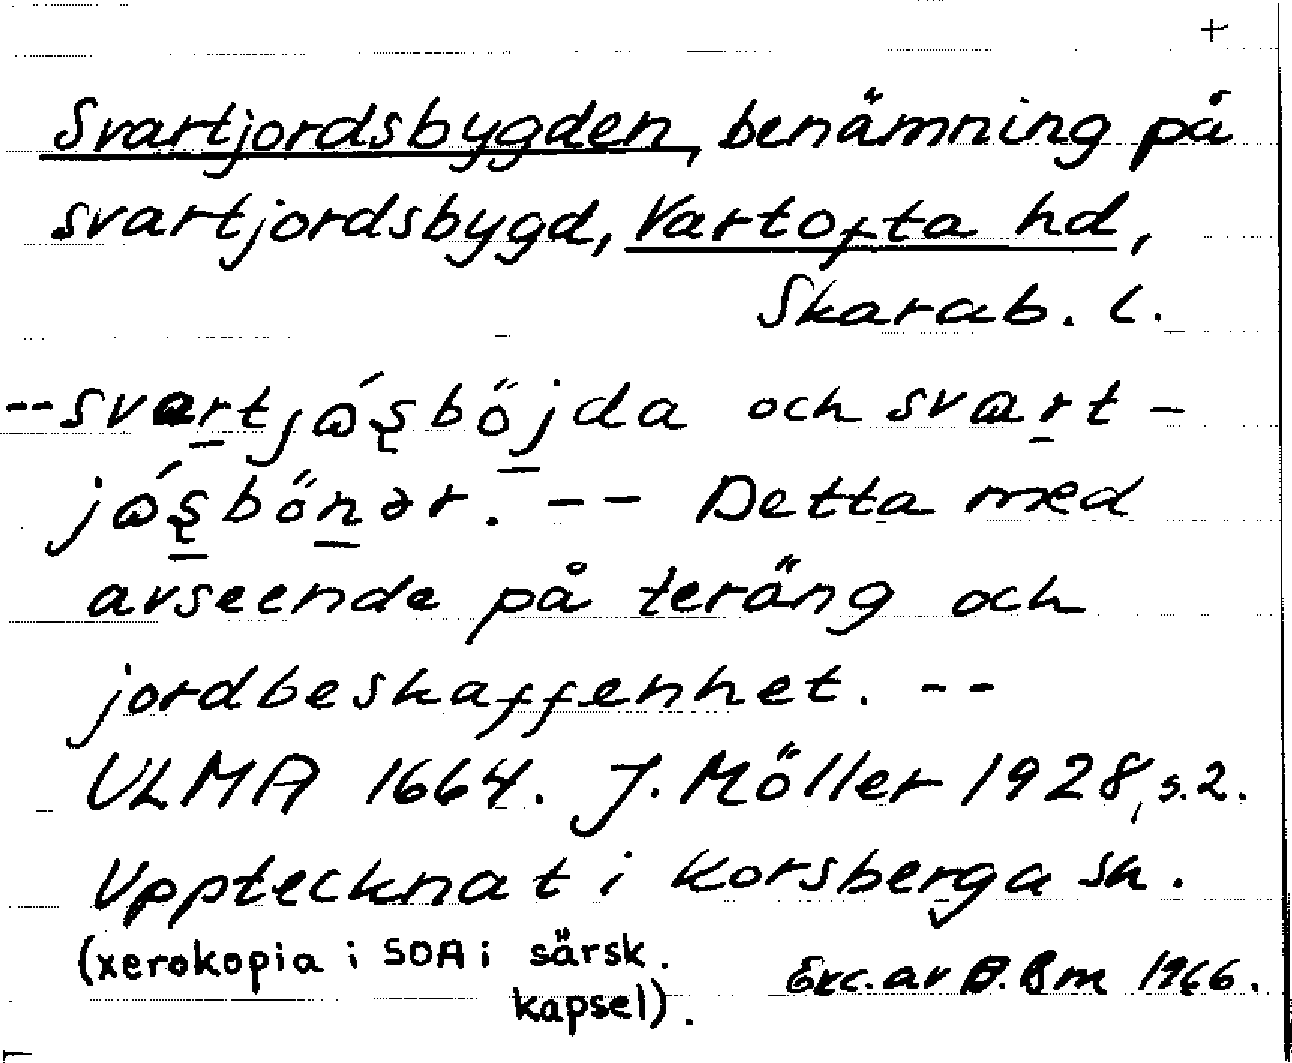 +
Svartjordsbygden, benämning på
svartjordsbygd, Vartofta hd,
Skarab. l.
-- svartjɷ́ʂbö̀jda och svart-
jɷ́ʂbö̀nər. -- Detta med
avseende på teräng och
jordbeskaffenhet. --
ULMA 1664. J. Möller 1928, s. 2.
Upptecknat i Korsberga sn.
(xerokopia i SOA i särsk.
kapsel).
Exc. av B. Bm 1966.